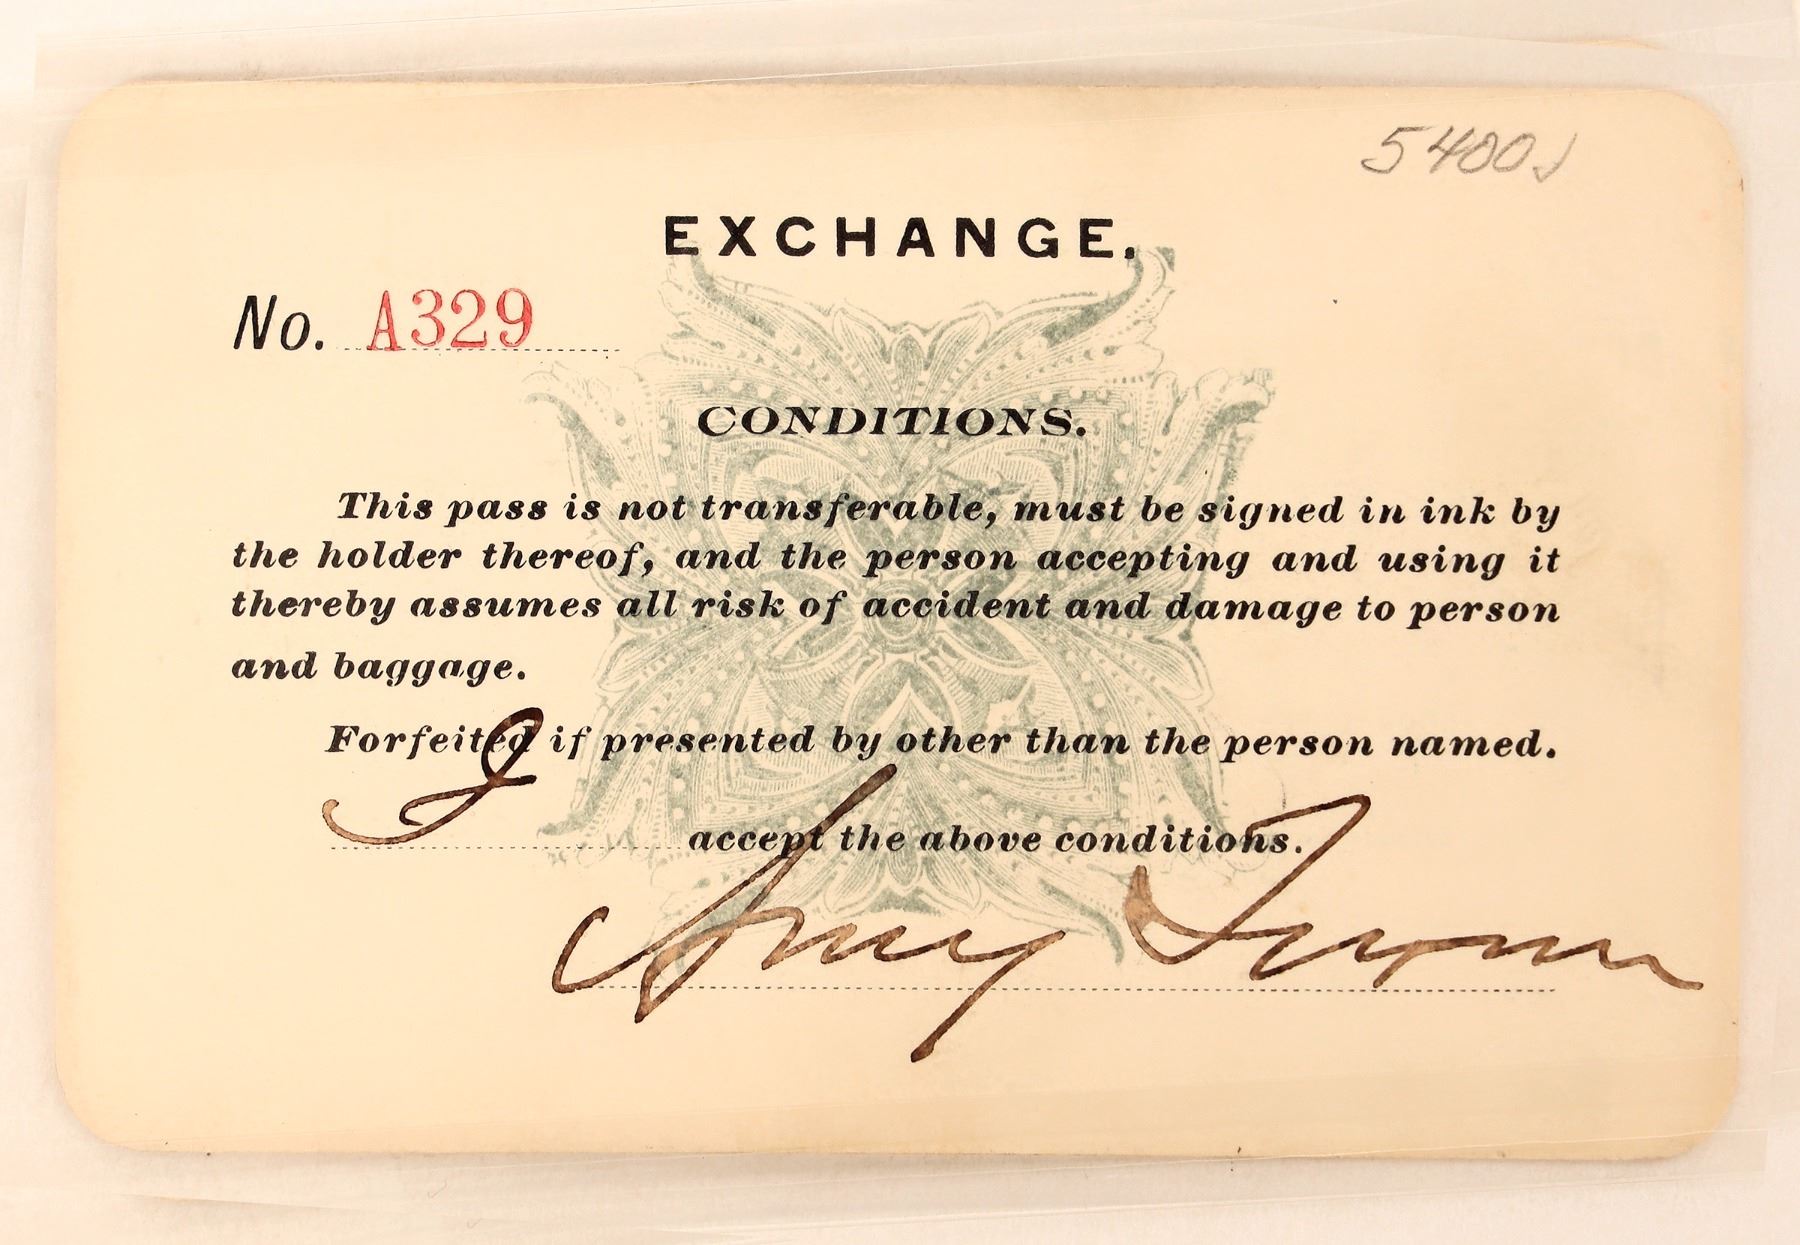 5400
EXCHANGE.
No. A329
CONDITIONS.
This pass is not transferable, must be signed in ink by
the holder thereof, and the person accepting and using it
thereby assumes all risk of accident and damage to person
and baggage.
Forfeited if presented by other than the person named.
I accept the above conditions.